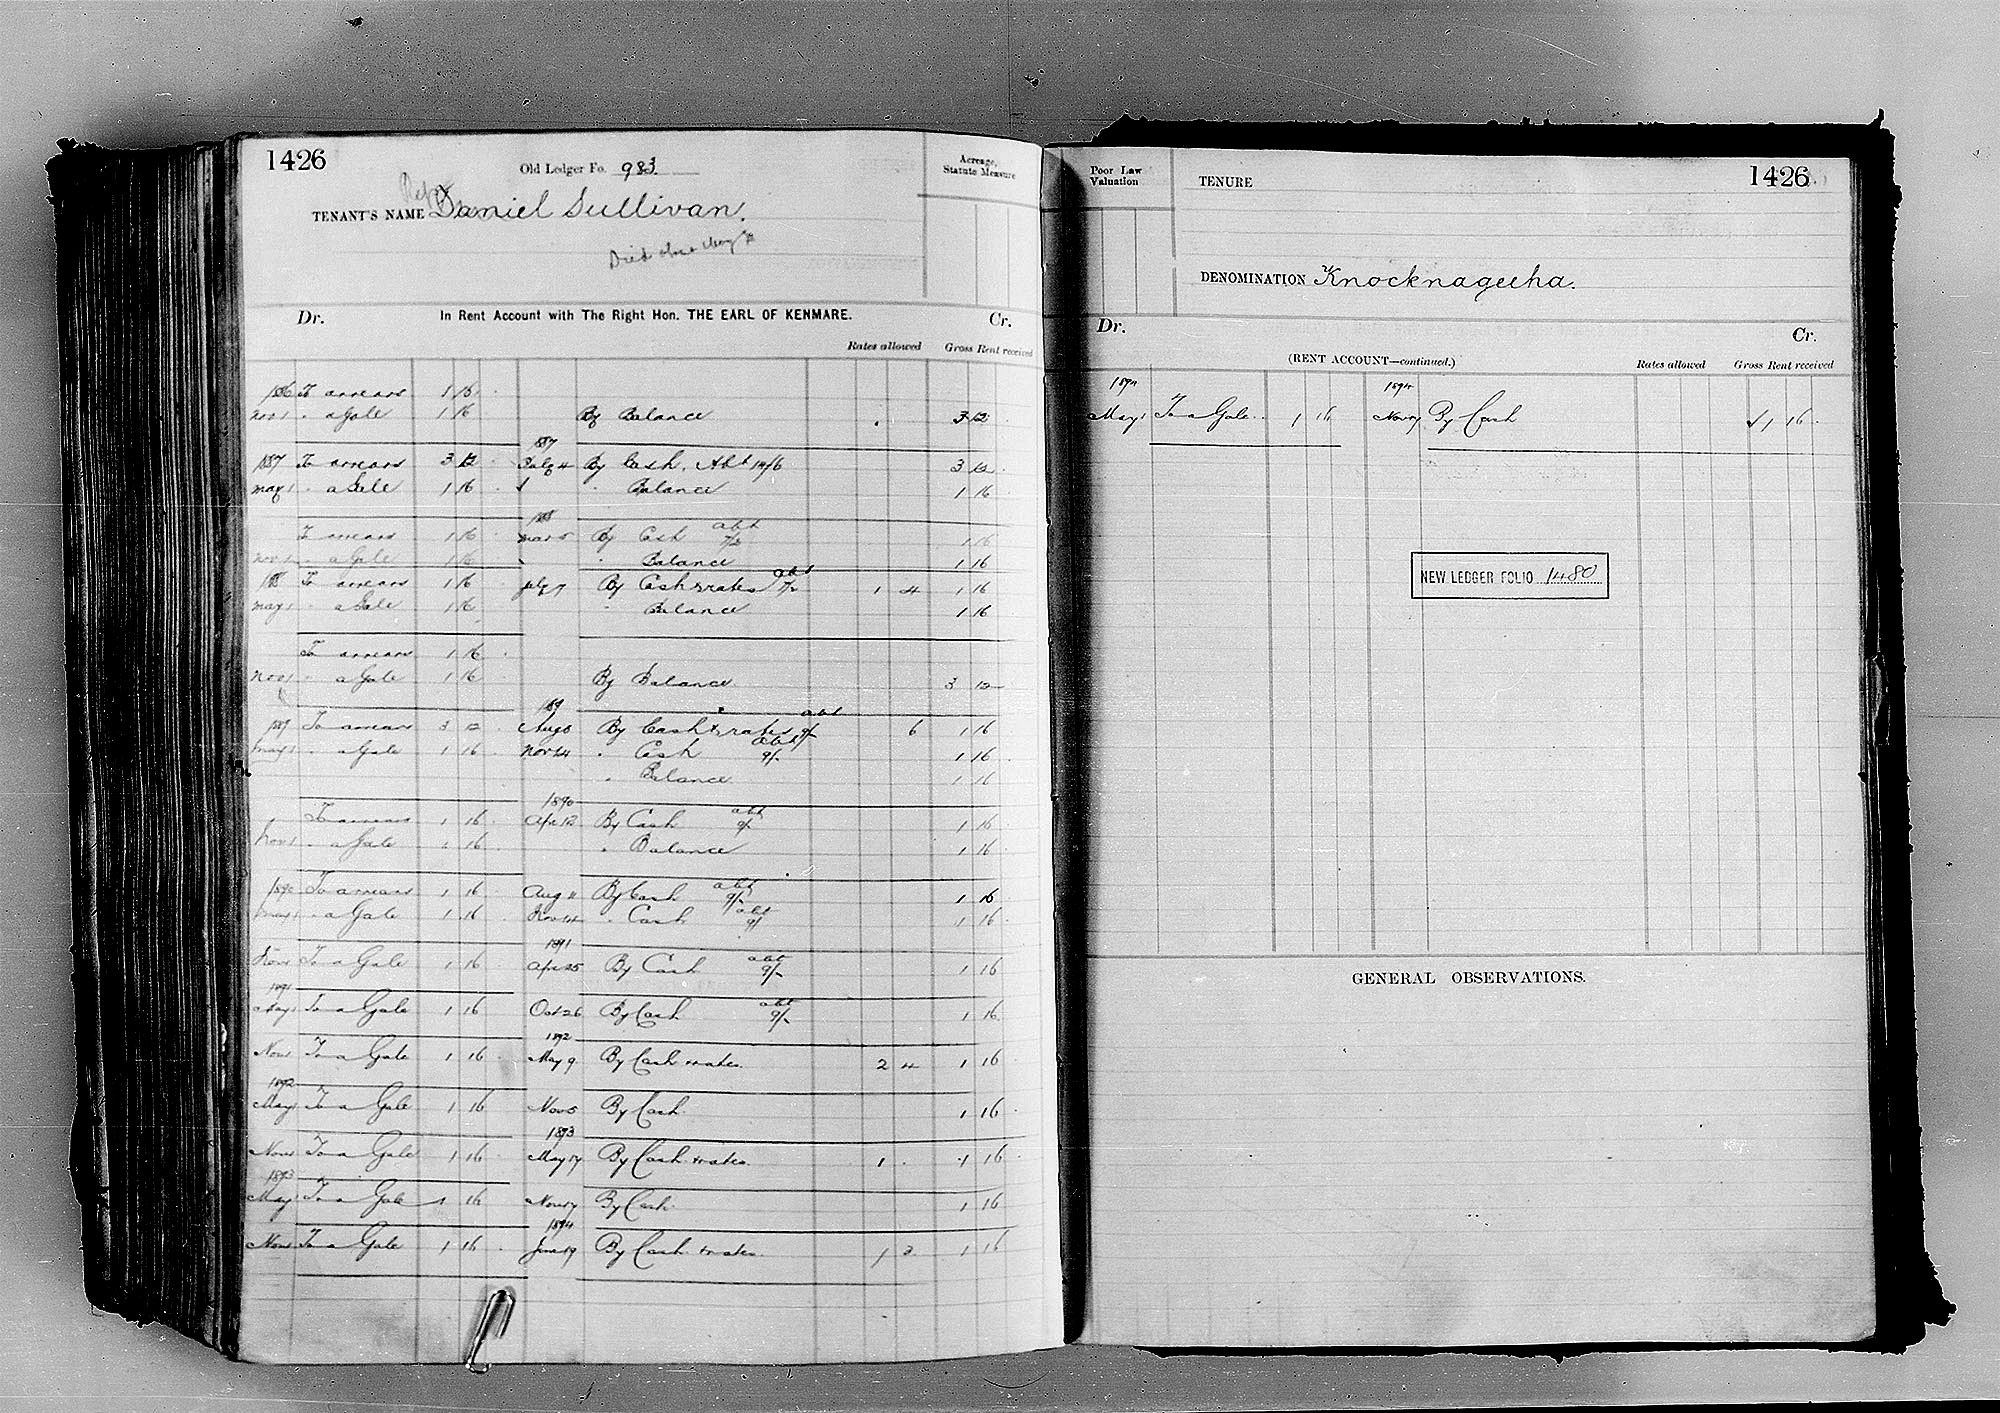 1426
Old Ledger Fo. 983
Acreage, Statute Measure
TENANT'S NAME Daniel Sullivan.
Died
Dr. In Rent Account with The Right Hon. THE EARL OF KENMARE. Cr.
Rates allowed Gross Rent received
1886 To arrears 1 16
Nov 1 " a Gale 1 16 By Balance 3 12
1887
1887 To arrears 3 12 July 4 By Cash, Abt 14/6 3 12
May 1 " a Gale 1 16 " Balance 1 16
1888
To arrears 1 16 Mar 5 By Cash abt 7/2 1 16
Nov 1 " a Gale 1 16 " Balance 1 16
1888 To arrears 1 16 July 7 By Cash & rates abt 7/2 1 4 1 16
May 1 " a Gale 1 16 " Balance 1 16
To arrears 1 16
Nov 1 " a Gale 1 16 By Balance 3 12
1889
1889 To arrears 3 12 Aug 5 By Cash & rates abt 9/- 6 1 16
May 1 " a Gale 1 16 Nov 24 " Cash abt 9/- 1 16
" Balance 1 16
1890
To arrears 1 16 Apr 12 By Cash abt 9/- 1 16
Nov 1 " a Gale 1 16 " Balance 1 16
1890 To arrears 1 16 Aug 11 By Cash abt 9/- 1 16
May 1 " a Gale 1 16 Nov 24 " Cash abt 9/- 1 16
1891
Nov 1 To a Gale 1 16 Apr 25 By Cash abt 9/- 1 16
1891
May 1 To a Gale 1 16 Oct 26 By Cash abt 9/- 1 16
1892
Nov 1 To a Gale 1 16 May 9 By Cash & rates. 2 4 1 16
1892
May 1 To a Gale 1 16 Nov 5 By Cash 1 16
1893
Nov 1 To a Gale 1 16 May 17 By Cash & rates. 1 . 1 16
1893
May 1 To a Gale 1 16 Nov 17 By Cash. 1 16
1894
Nov 1 To a Gale 1 16 June 19 By Cash & rates. 1 2 1 16
Poor Law Valuation
TENURE
1426
DENOMINATION Knocknageeha.
Dr. Cr.
(RENT ACCOUNT—continued.) Rates allowed Gross Rent received
1894 1894
May 1 To a Gale. 1 16 Nov 17 By Cash 1 16
NEW LEDGER FOLIO 1480
GENERAL OBSERVATIONS.